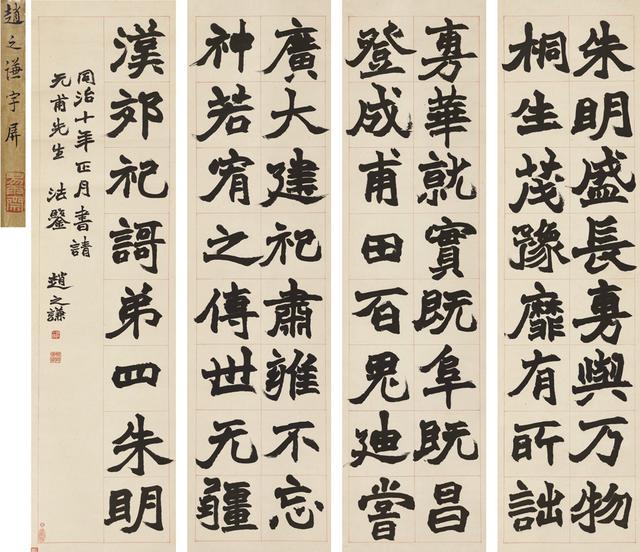 朱明盛長旉與万物
桐生茂豫靡有所詘
旉華就實既阜既昌
登成甫田百鬼迪嘗
廣大建祀肅雝不忘
神若宥之傳世无疆
漢郊祀謌弟四朱明
同治十年正月書請
元甫先生 法鑒 趙之謙
趙之謙字屏